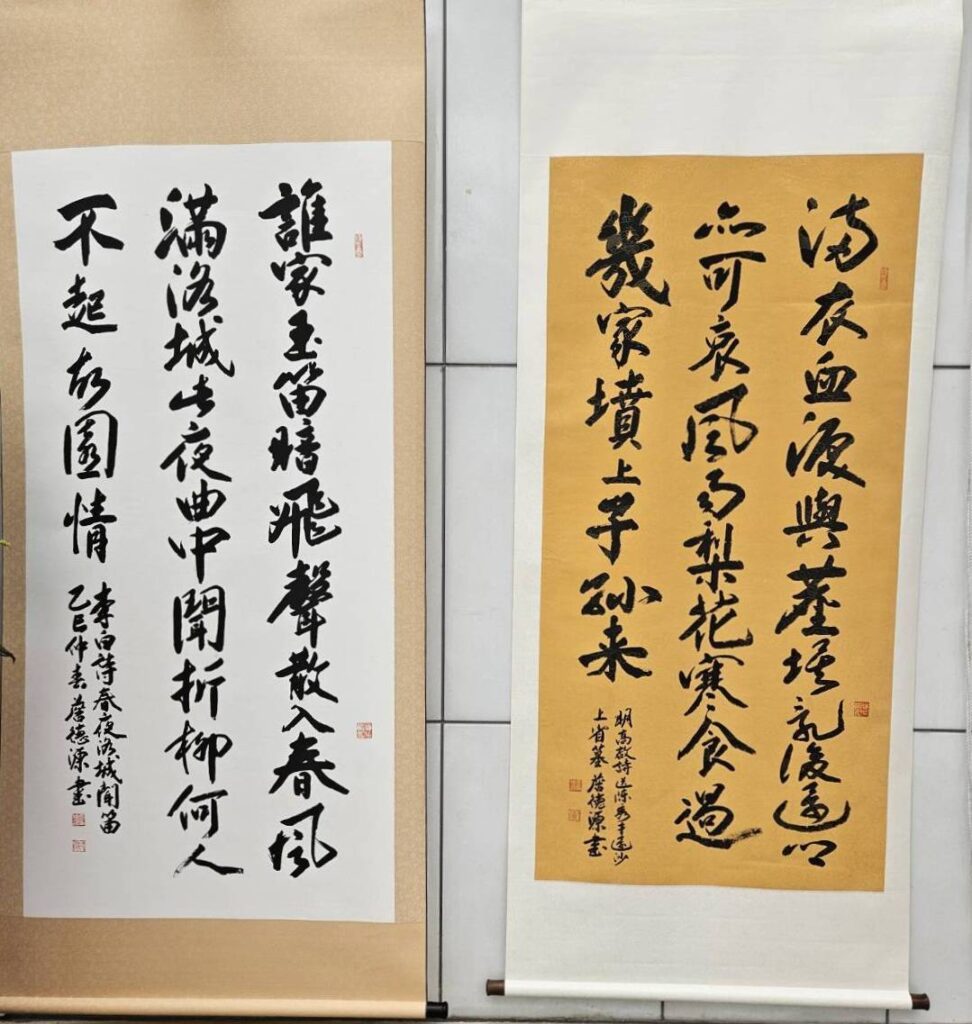 滿衣血淚與塵埃亂後還鄉
亦可哀風雨梨花寒食過
幾家墳上子孫来
明高啟詩送陳秀才還沙
上省墓 詹德源書
誰家玉笛暗飛聲散入春風
滿洛城此夜曲中聞折柳何人
不起故園情
李白詩春夜洛城聞笛
乙巳仲春詹德源書